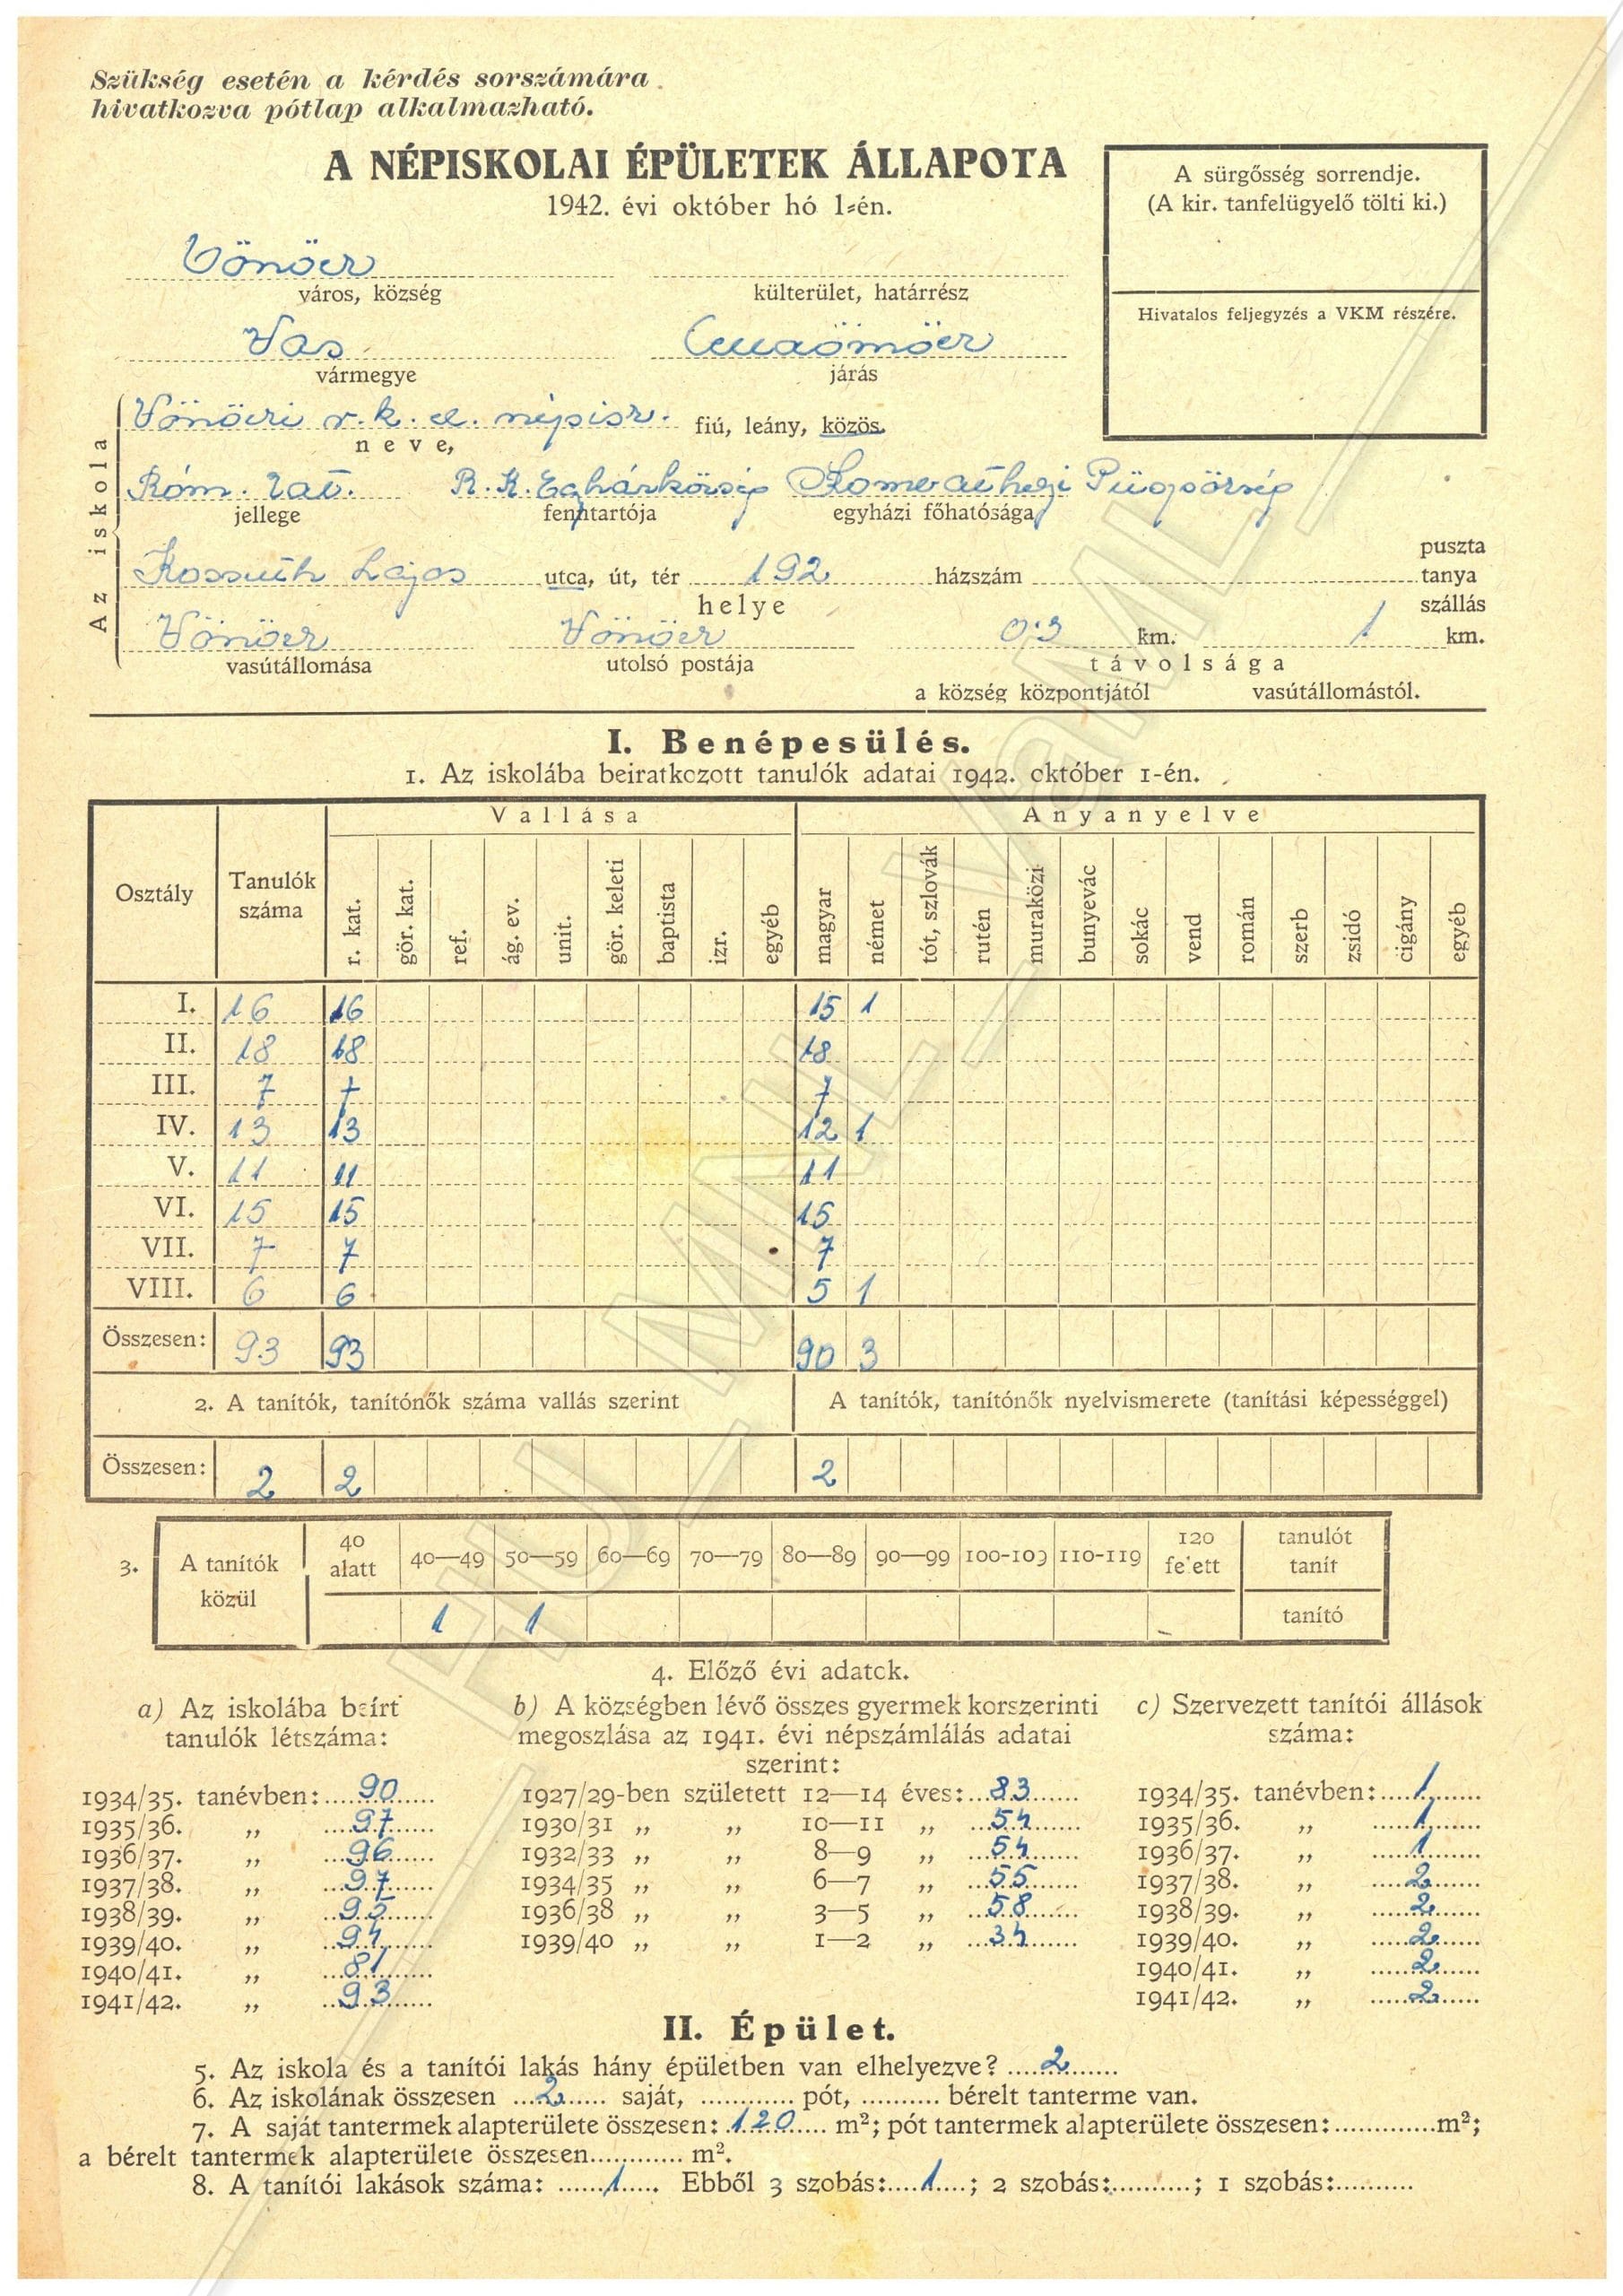 Szükség esetén a kérdés sorszámára
hivatkozva pótlap alkalmazható.
A NÉPISKOLAI ÉPÜLETEK ÁLLAPOTA
1942. évi október hó 1-én.
A sürgősség sorrendje.
(A kir. tanfelügyelő tölti ki.)
Hivatalos feljegyzés a VKM részére.
Vönöck
város, község
külterület, határrész
Vas
vármegye
járás
Az iskola
Vönöcki r. k. el. népisk. fiú, leány, közös.
neve,
Róm. kat. R. K. Egyházközség Szombathelyi Püspökség
jellege fenntartója egyházi főhatósága
Kossuth Lajos utca, út, tér 192 házszám puszta tanya szállás
helye
Vönöck Vönöck 0.3 km. 1 km.
vasútállomása utolsó postája távolsága
a község központjától vasútállomástól.
I. Benépesülés.
1. Az iskolába beiratkozott tanulók adatai 1942. október 1-én.
Osztály Tanulók száma Vallása Anyanyelve
r. kat. gör. kat. ref. ág. ev. unit. gör. keleti baptista izr. egyéb magyar német tót, szlovák rutén muraközi bunyevác sokác vend román szerb zsidó cigány egyéb
I. 16 16 15 1
II. 18 18 18
III. 7 7 7
IV. 13 13 12 1
V. 11 11 11
VI. 15 15 15
VII. 7 7 7
VIII. 6 6 5 1
Összesen: 93 93 90 3
2. A tanítók, tanítónők száma vallás szerint A tanítók, tanítónők nyelvismerete (tanítási képességgel)
Összesen: 2 2 2
3. A tanítók közül 40 alatt 40—49 50—59 60—69 70—79 80—89 90—99 100-109 110-119 120 felett tanulót tanít
1 1 tanító
4. Előző évi adatok.
a) Az iskolába beírt tanulók létszáma:
1934/35. tanévben: 90
1935/36. „ 97
1936/37. „ 96
1937/38. „ 97
1938/39. „
1939/40. „ 94
1940/41. „ 81
1941/42. „ 93
b) A községben lévő összes gyermek korszerinti
megoszlása az 1941. évi népszámlálás adatai
szerint:
1927/29-ben született 12—14 éves: 83
1930/31 „ „ 10—11 „ 54
1932/33 „ „ 8—9 „ 54
1934/35 „ „ 6—7 „ 55
1936/38 „ „ 3—5 „ 58
1939/40 „ „ 1—2 „ 34
c) Szervezett tanítói állások
száma:
1934/35. tanévben: 1
1935/36. „ 1
1936/37. „ 1
1937/38. „ 2
1938/39. „ 2
1939/40. „ 2
1940/41. „ 2
1941/42. „ 2
II. Épület.
5. Az iskola és a tanítói lakás hány épületben van elhelyezve? 2
6. Az iskolának összesen 2 saját, pót, bérelt tanterme van.
7. A saját tantermek alapterülete összesen: 120 m²; pót tantermek alapterülete összesen: m²;
a bérelt tantermek alapterülete összesen m².
8. A tanítói lakások száma: 1 Ebből 3 szobás: 1; 2 szobás: ; 1 szobás:
HU_MNL_VSML